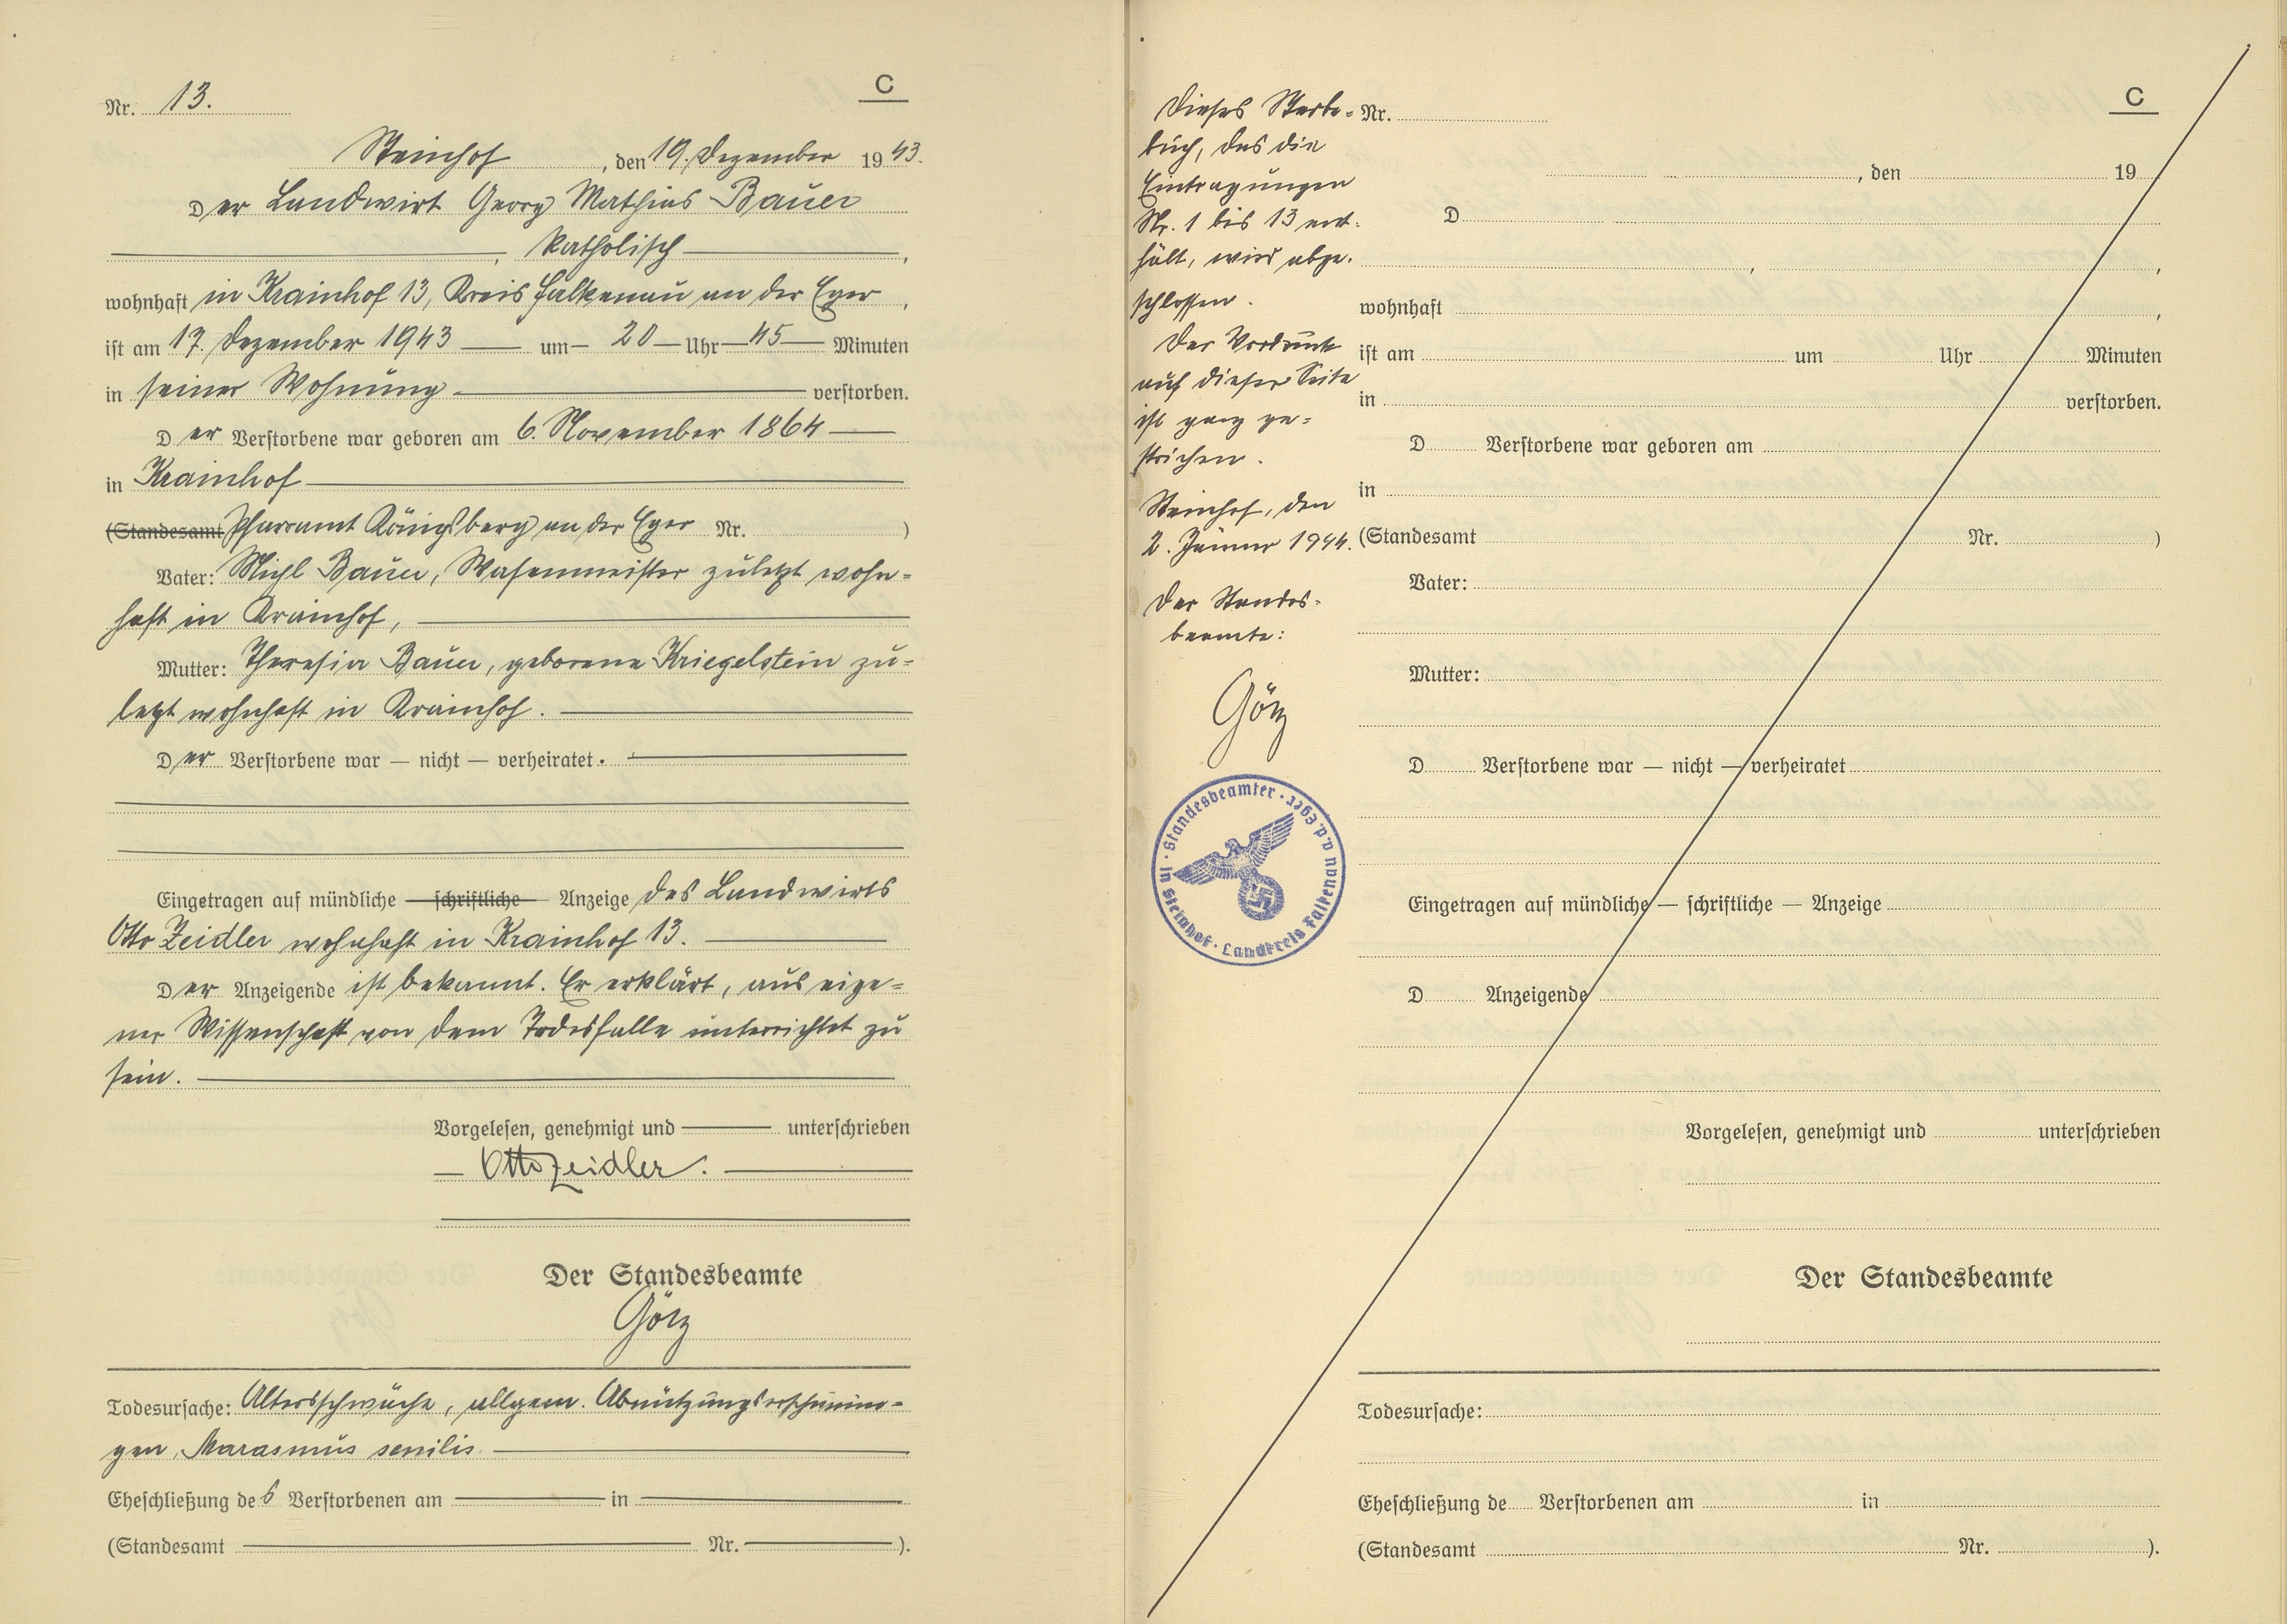 Nr. 13.
C
Steinhof, den 19. Dezember 1943.
Der Landwirt Georg Mathias Bauer
, katholisch,
wohnhaft in Krainhof 13, Kreis Falkenau an der Eger,
ist am 17. Dezember 1943 um 20 Uhr 45 Minuten
in seiner Wohnung verstorben.
Der Verstorbene war geboren am 6. November 1864
in Krainhof
(Standesamt Pfarramt Königsberg an der Eger Nr. )
Vater: Michl Bauer, Wasenmeister zuletzt wohn-
haft in Krainhof,
Mutter: Theresia Bauer, geborene Kriegelstein zu-
letzt wohnhaft in Krainhof.
Der Verstorbene war — nicht — verheiratet.
Eingetragen auf mündliche — schriftliche — Anzeige des Landwirts
Otto Zeidler wohnhaft in Krainhof 13.
Der Anzeigende ist bekannt. Er erklärt, aus eige-
ner Wissenschaft von dem Todesfalle unterrichtet zu
sein.
Vorgelesen, genehmigt und unterschrieben
Otto Zeidler.
Der Standesbeamte
Görz
Todesursache: Altersschwäche, allgem. Abnützungserscheinun-
gen, Marasmus senilis.
Eheschließung des Verstorbenen am in
(Standesamt Nr. ).
Dieses Sterbe-
buch, das die
Eintragungen
Nr. 1 bis 13 ent-
hält, wird abge-
schlossen.
Der Vordruck
auf dieser Seite
ist ganz ge-
strichen.
Steinhof, den
2. Jänner 1944.
Der Standes-
beamte:
Görz
Standesbeamter · in Steinhof · Landkreis Falkenau a.d. Eger ·
C
Nr.
, den 19
D
, ,
wohnhaft ,
ist am um Uhr Minuten
in verstorben.
D Verstorbene war geboren am
in
(Standesamt Nr. )
Vater:
Mutter:
D Verstorbene war — nicht — verheiratet
Eingetragen auf mündliche — schriftliche — Anzeige
D Anzeigende
Vorgelesen, genehmigt und unterschrieben
Der Standesbeamte
Todesursache:
Eheschließung de Verstorbenen am in
(Standesamt Nr. ).